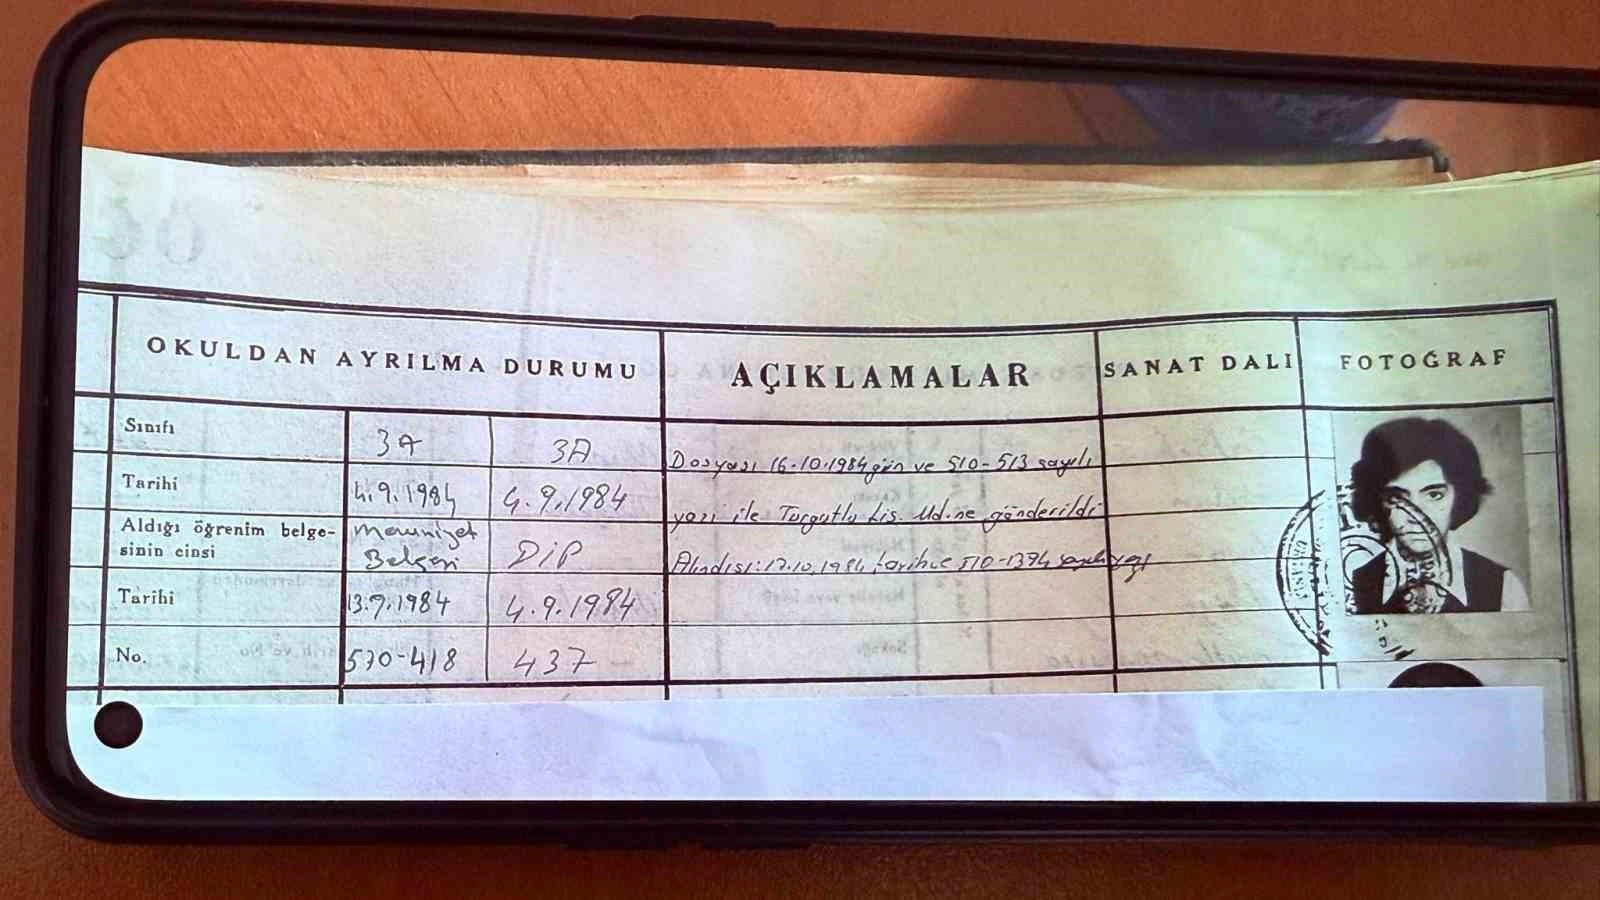 OKULDAN AYRILMA DURUMU AÇIKLAMALAR SANAT DALI FOTOĞRAF
Sınıfı 3A 3A Dosyası 16.10.1984 gün ve 510-513 sayılı
Tarihi 4.9.1984 4.9.1984 yazı ile Turgutlu Lis. Md.ne gönderildi
Aldığı öğrenim belge-
sinin cinsi Mezuniyet Belgesi DİP Alındısı: 17.10.1984 tarih ve 510-1374 sayılı yazı
Tarihi 13.9.1984 4.9.1984
No. 570-418 437